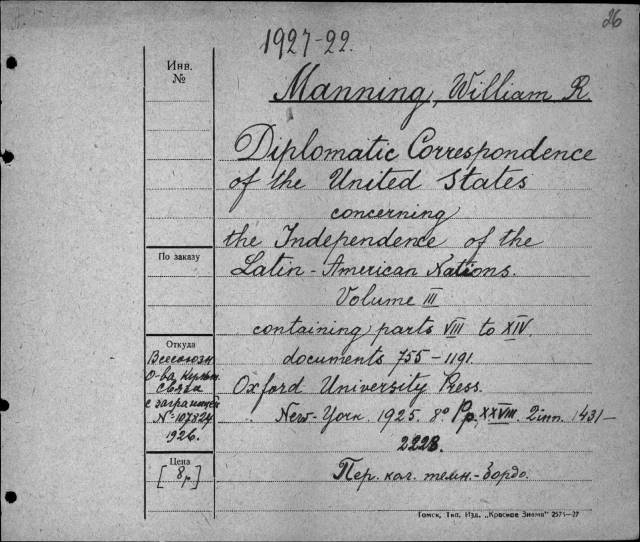 26
1927-22.
Инв.
№
Manning, William R
Diplomatic Correspondence
of the United States
concerning
the Independence of the
По заказу
Latin-American Nations.
Volume III
containing parts VIII to XIV.
Откуда
Всесоюзн.
documents 755-1191.
О-ва Культ.
Связи
Oxford University Press.
с заграницей
№ 107827
New-York. 1925. 8° Pp. XXVIII. 2 inn. 1431-
1926.
2228.
Цена
[8р]
Пер. кол. темн.-бордо.
Томск, Тип. Изд. „Красное Знамя" 2575-27